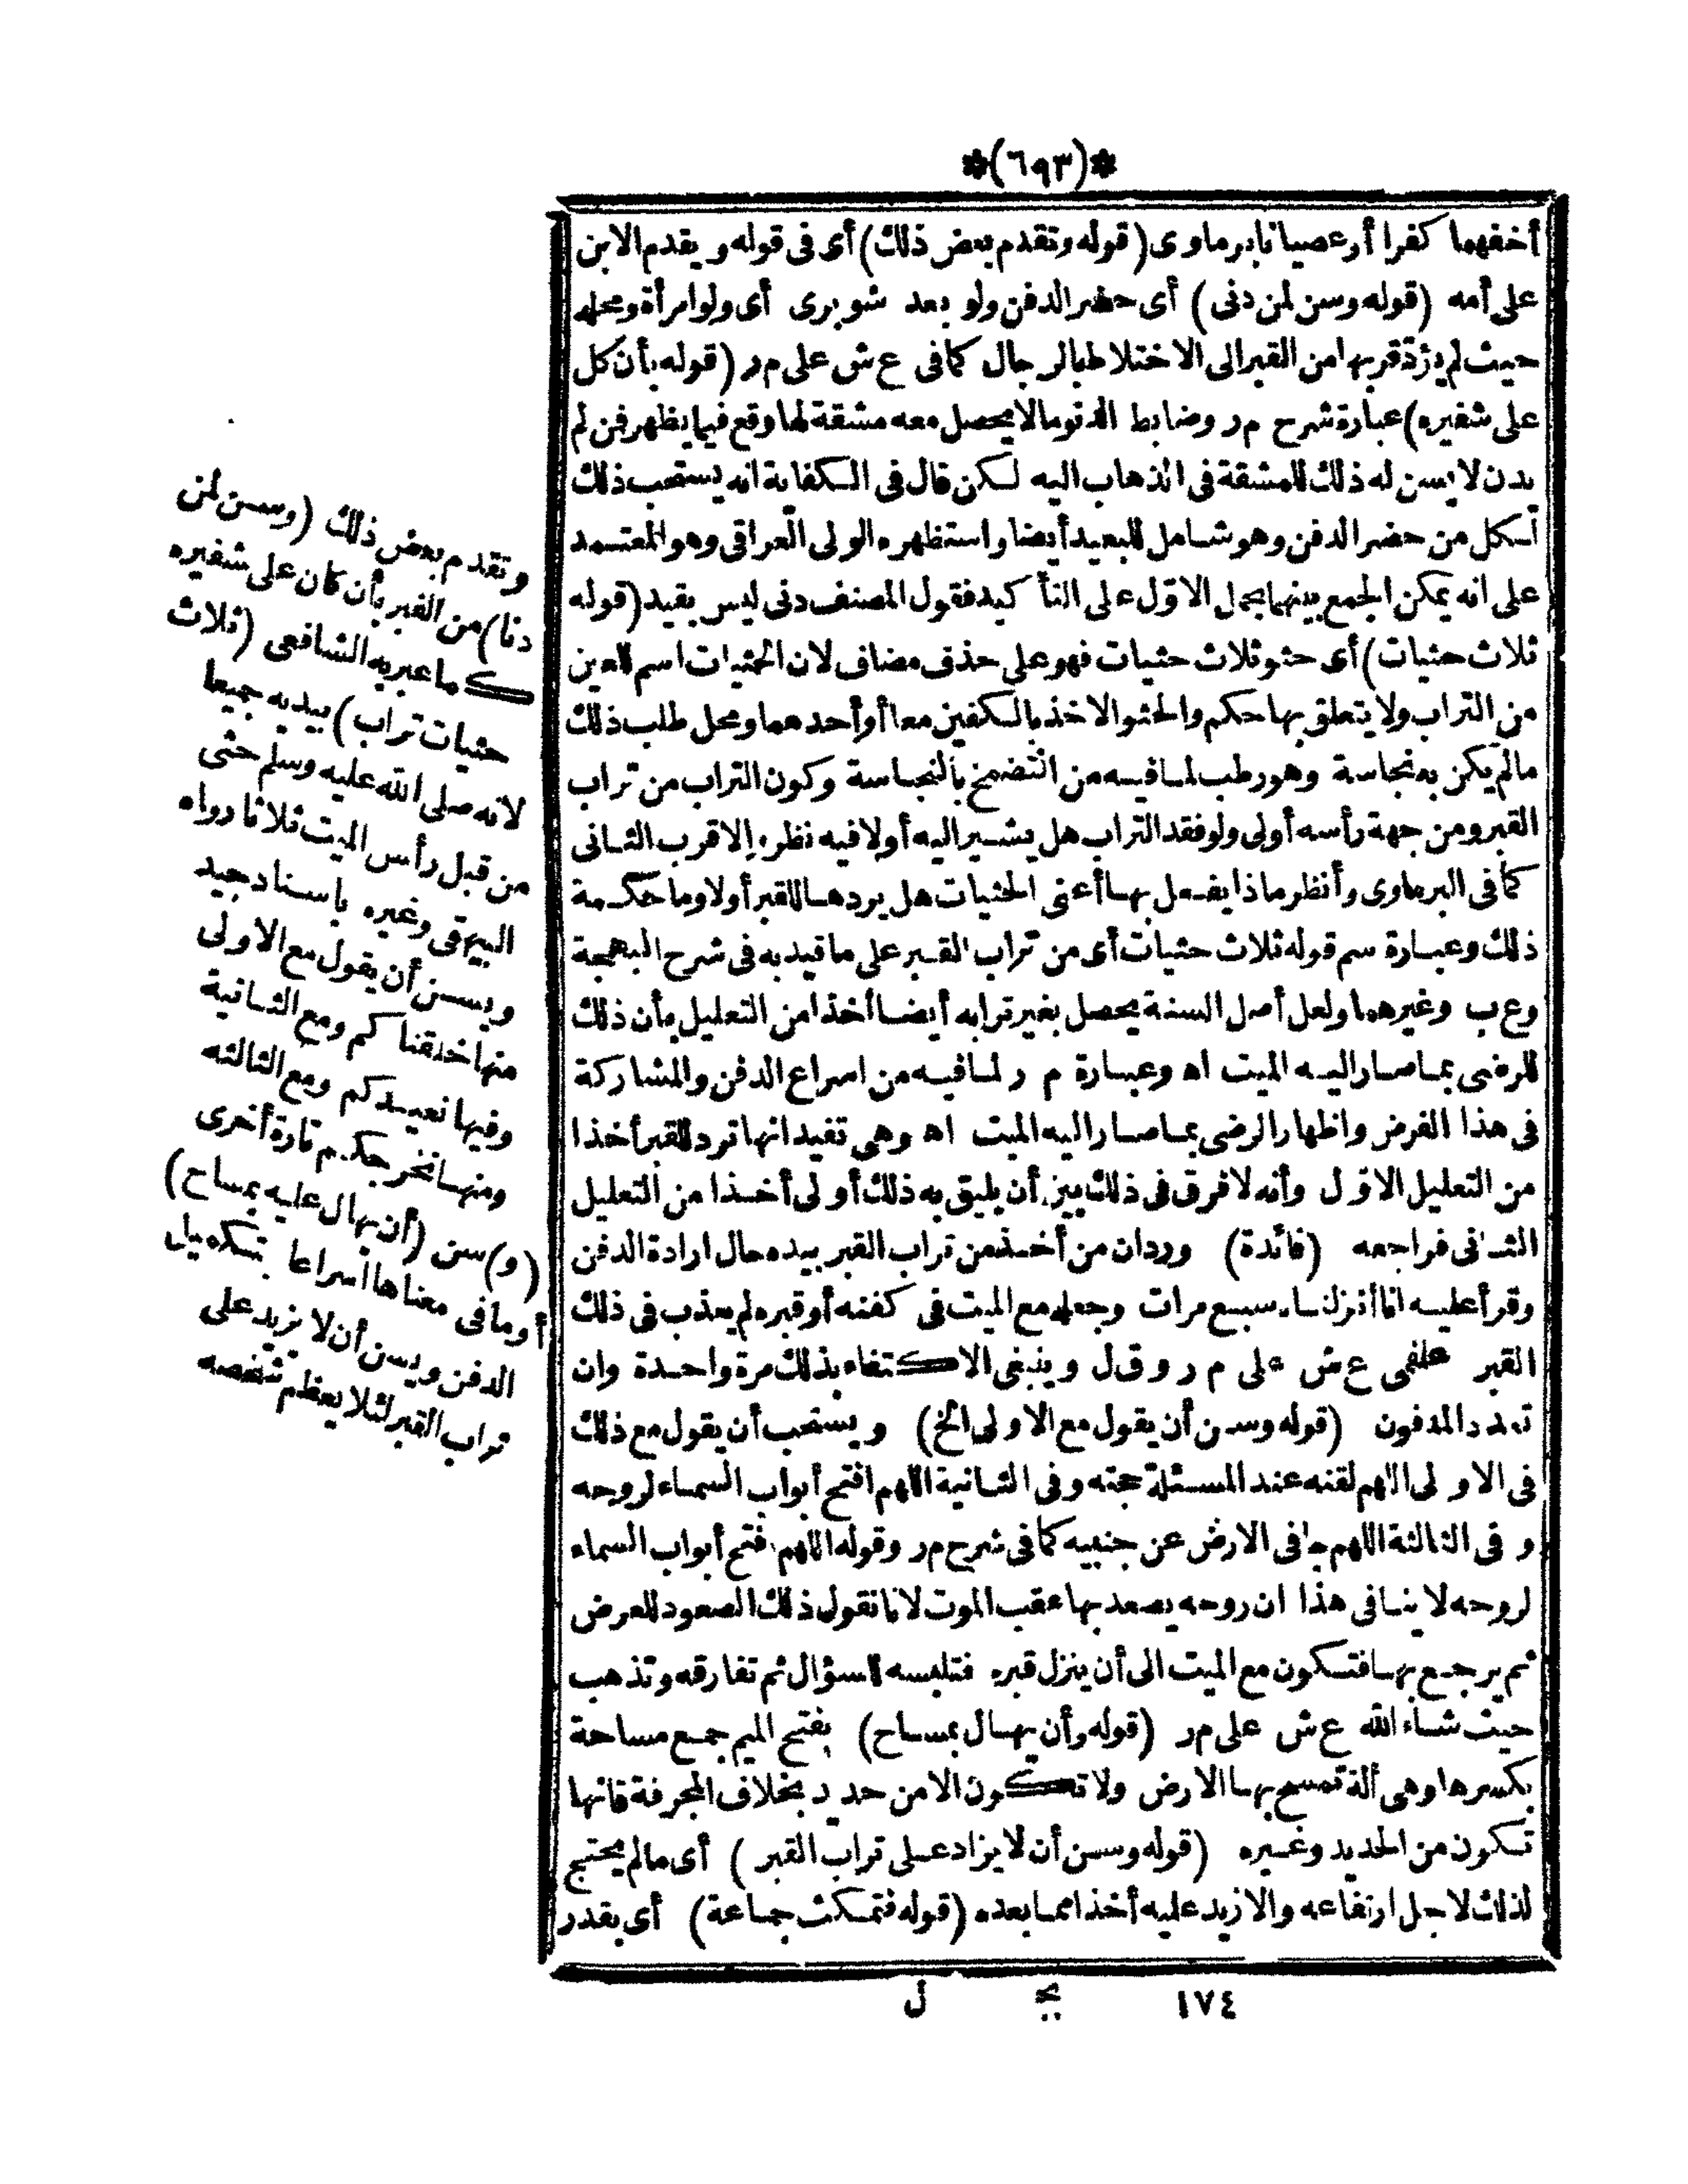 *(٦٩٣)*
أخفهما كفرا أوعصيانا برماوى (قوله وتقدم بعض ذلك) أى فى قوله ويقدم الابن
على أمه (قوله وسن لمن دنى) أى حضر الدفن ولو بعد شوبرى أى ولوامرأة ومحله
حيث لم يؤد قربها من القبر الى الاختلاط بالرجال كمافى ع ش على م ر (قوله بأن كل
على شفيره) عبارة شرح م ر وضابط الدنو مالا يحصل معه مشقة لها وقع فيما يظهر فمن لم
يدن لا يسن له ذلك للمشقة فى الذهاب اليه لكن قال فى الكفاية انه يستحب ذلك
لكل من حضر الدفن وهو شامل للبعيد أيضا واستظهره الولى العراقى وهو المعتمد
على انه يمكن الجمع بينهما بحمل الاوّل على التأكيد فقول المصنف دنى ليس بقيد (قوله
ثلاث حثيات) أى حثو ثلاث حثيات فهو على حذف مضاف لان الحثيات اسم للعين
من التراب ولا يتعلق بها حكم والحثو الاخذ بالكفين معا أو أحدهما ومحل طلب ذلك
مالم يكن به نجاسة وهو رطب لمافيه من التضمخ بالنجاسة وكون التراب من تراب
القبر ومن جهة رأسه أولى ولو فقد التراب هل يشير اليه أولا فيه نظر والاقرب الثانى
كمافى البرماوى وأنظر ماذا يفعل بها أعنى الحثيات هل يردها للقبر أولا وما حكمة
ذلك وعبارة سم قوله ثلاث حثيات أى من تراب القبر على ما قيد به فى شرح البهجة
وع ب وغيرهما ولعل أصل السنة يحصل بغير ترابه أيضا أخذا من التعليل بأن ذلك
للرضى بما صار اليه الميت اه وعبارة م ر لمافيه من اسراع الدفن والمشاركة
فى هذا الفرض واظهار الرضى بما صار اليه الميت اه وهى تفيد انها ترد للقبر أخذا
من التعليل الاوّل وأنه لا فرق فى ذلك بين أن يليق به ذلك أولى أخذا من التعليل
الثانى فراجعه (فائدة) ورد ان من أخذ من تراب القبر بيده حال ارادة الدفن
وقرأ عليه انا أنزلناه سبع مرات وجعله مع الميت فى كفنه أو قبره لم يعذب فى ذلك
القبر علقمى ع ش على م ر و ق ل وينبغى الاكتفاء بذلك مرة واحدة وان
تعدد المدفون (قوله وسن أن يقول مع الاولى الخ) ويستحب أن يقول مع ذلك
فى الاولى اللهم لقنه عند المسئلة حجته وفى الثانية اللهم افتح أبواب السماء لروحه
وفى الثالثة اللهم جافى الارض عن جنبيه كمافى شرح م ر وقوله اللهم افتح أبواب السماء
لروحه لا ينافى هذا ان روحه يصعد بها عقب الموت لانا نقول ذلك الصعود للعرض
ثم يرجع بها فتكون مع الميت الى أن ينزل قبره فتلبسه للسؤال ثم تفارقه وتذهب
حيث شاء الله ع ش على م ر (قوله وأن يهال بمساح) بفتح الميم جمع مساحة
بكسرها وهى ألة تمسح بها الارض ولا تكون الا من حديد بخلاف المجرفة فانها
تكون من الحديد وغيره (قوله وسن أن لا يزاد على تراب القبر) أى مالم يحتج
لذلك لاجل ارتفاعه والا زيد عليه أخذا مما بعده (قوله فتمكث جماعة) أى بقدر
وتقدم بعض ذلك (وسن لمن
دنا) من القبر بأن كان على شفيره
كما عبر به الشافعى (ثلاث
حثيات تراب) بيديه جميعا
لانه صلى الله عليه وسلم حثى
من قبل رأس الميت ثلاثا رواه
البيهقى وغيره باسناد جيد
ويسن أن يقول مع الاولى
منها خلقناكم ومع الثانية
وفيها نعيدكم ومع الثالثه
ومنها نخرجكم تارة أخرى
(و) سن (أن يهال عليه بمساح)
أو ما فى معناها اسراعا بتكميل
الدفن ويسن أن لا يزيد على
تراب القبر لئلا يعظم شخصه
١٧٤ بج ل